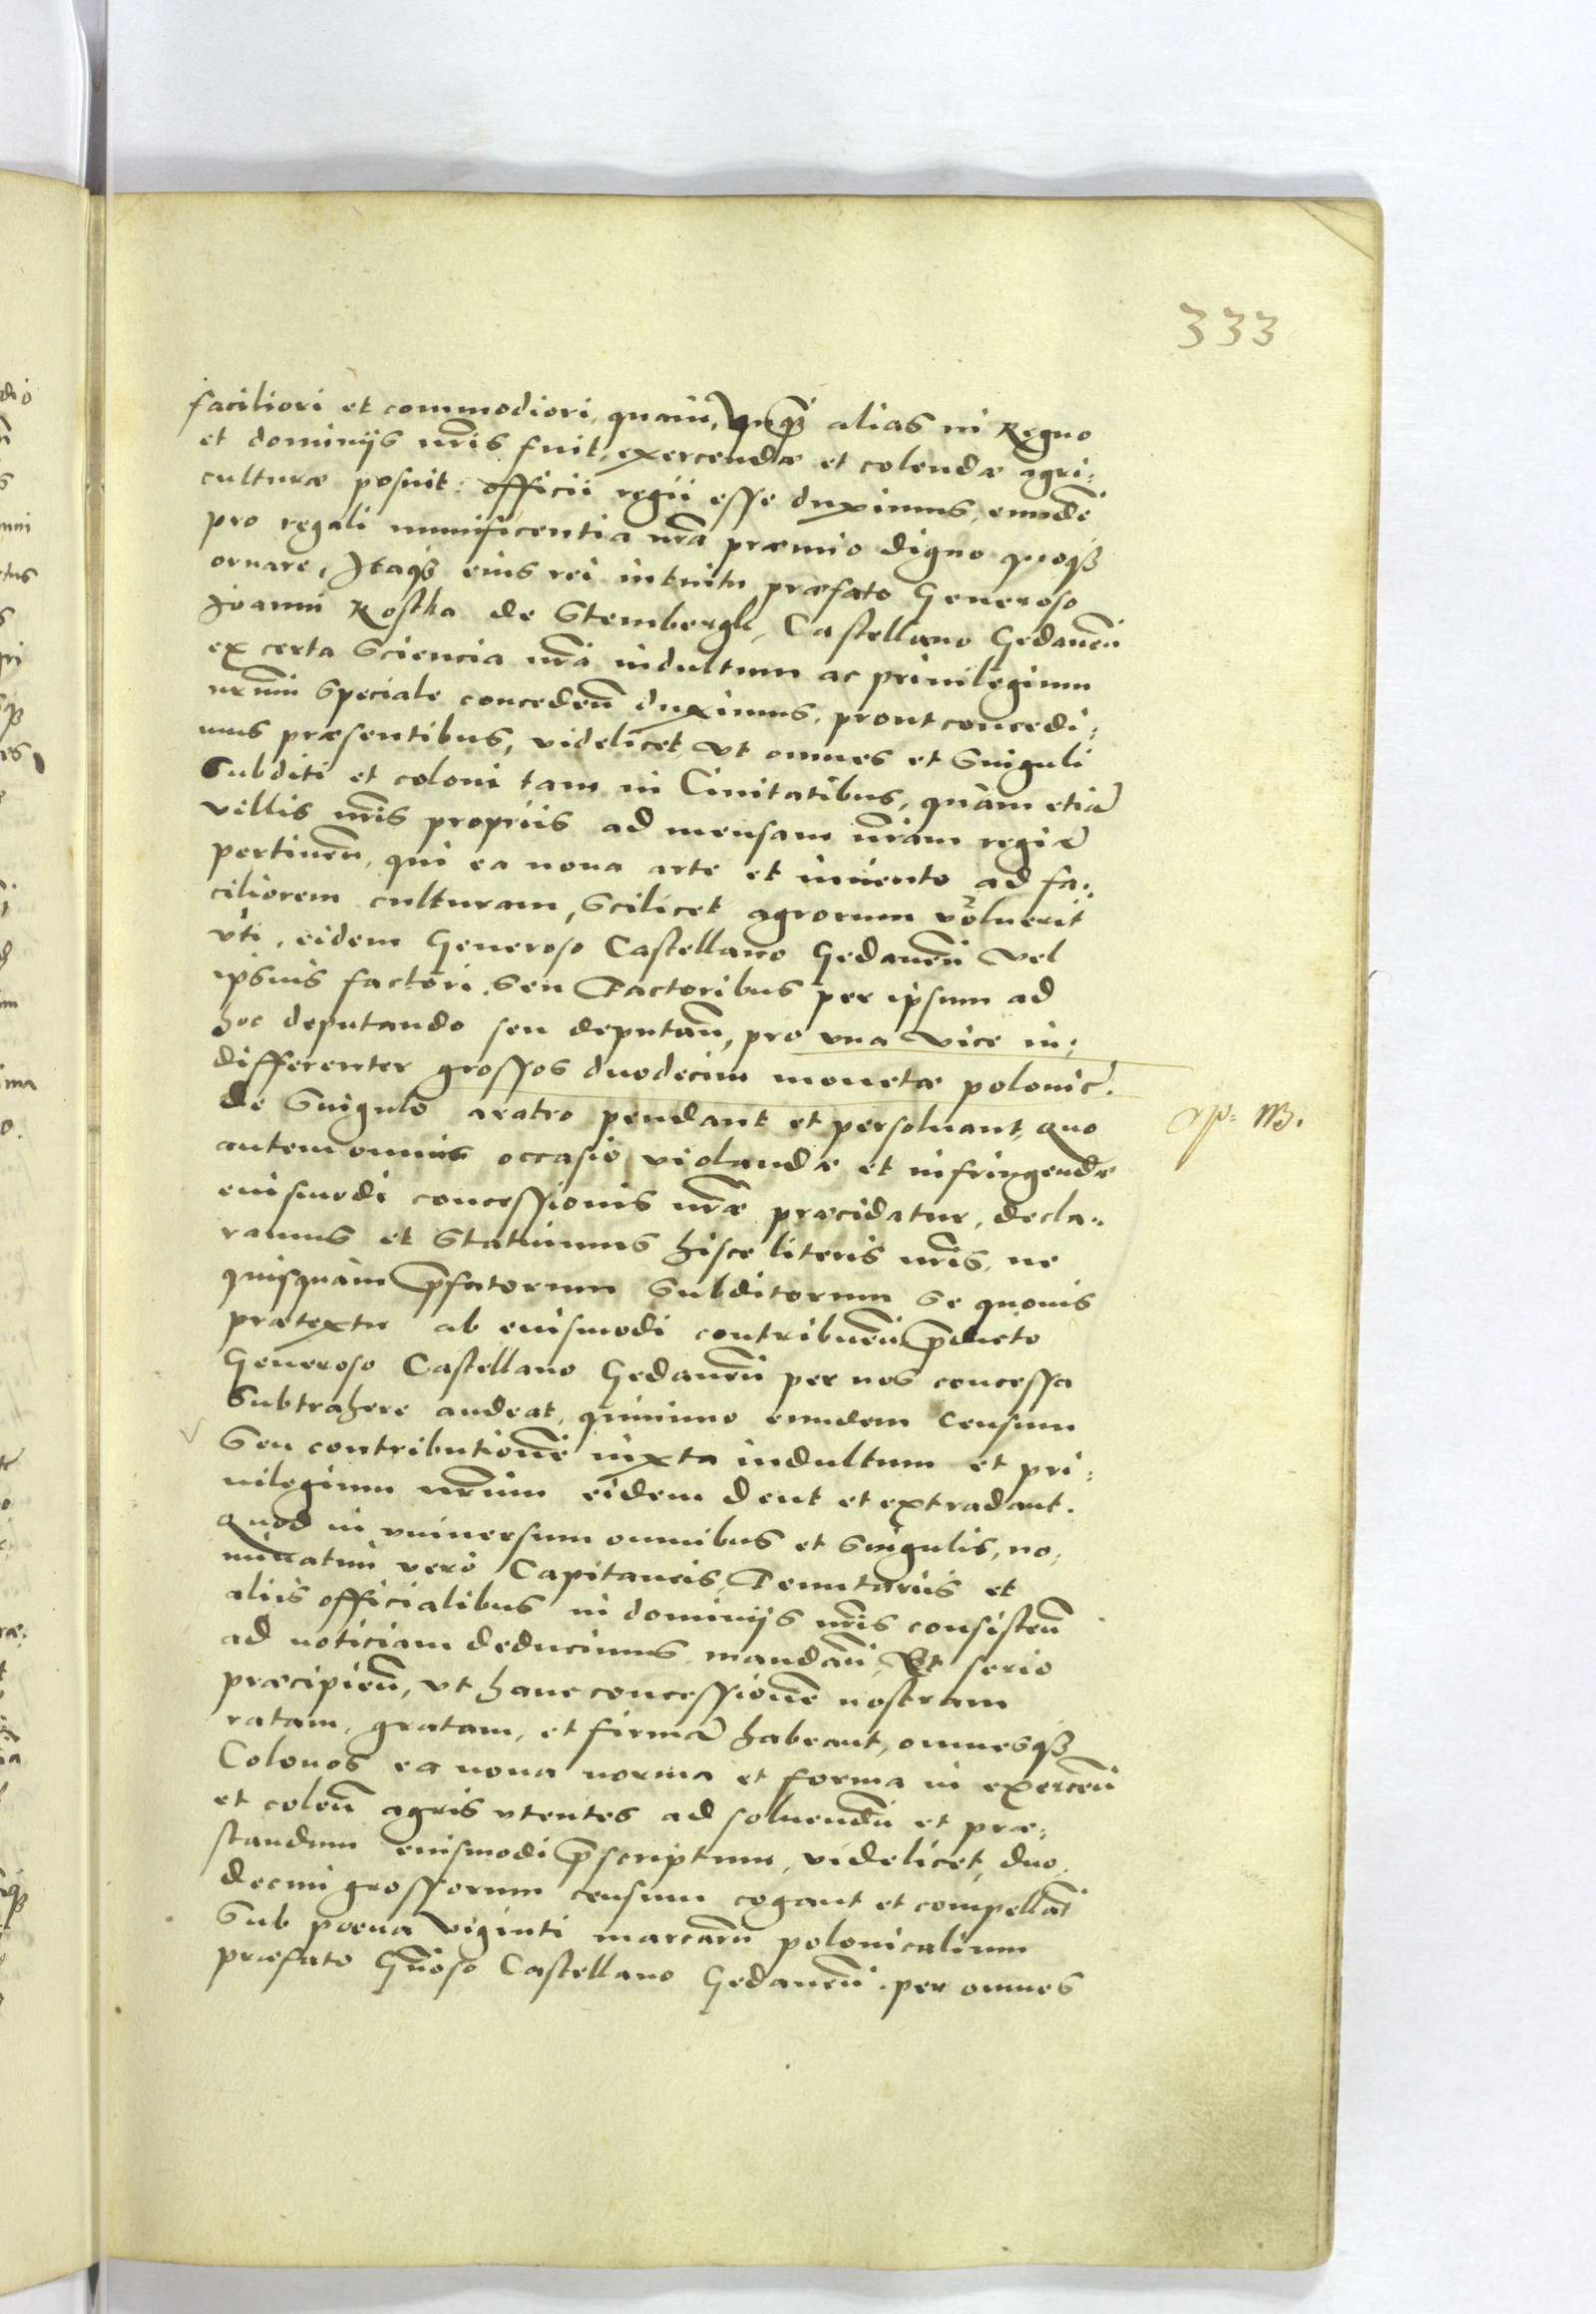 333
faciliori et commodiori, quam, vnq̃ȝ alias in Regno
et dominijs nr̃is fuit, exercendæ et colendæ agri:
culturæ posuit: officii regii esse duximus, eundẽ
pro regali munificentia nr̃a præmio digno quoqȝ
ornare, Itaqȝ eius rei intuitu præfato Generoso
Joanni Kostka de Stembergk, Castellano Gedaneñ
ex certa Sciencia nr̃a indultum ac priuilegium
nr̃um speciale concedeñ duximus, prout concedi:
mus præsentibus, videlicet, vt omnes et Singuli
Subditi et coloni tam in Ciuitatibus, quam etiã
villis nr̃is propriis ad mensam nr̃am regiã
pertineñ, qui ea noua arte et inuento ad fa:
ciliorem culturam, scilicet agrorum voluerit
vti, eidem Generoso Castellano Gedaneñ vel
ipsius factori, Seu Factoribus per ipsum ad
hoc deputando seu deputañ, pro vna vice in:
differenter grossos duodecim monetæ polonic̃.
de Singulo aratro pendant et persoluant, Quo
autem omnis occasio violandæ et infringendæ
eiusmodi concessionis nr̃æ præcidatur, decla:
ramus et Statuimus hisce literis nr̃is, ne
quisquam p̃fatorum Subditorum Se quouis
prætextu ab eiusmodi contribueñ p̃dicto
Generoso Castellano Gedaneñ per nos concessa
Subtrahere audeat, quinimo eundem Censum
Seu contributionẽ iuxta indultum et pri:
uilegium nr̃um eidem dent et extradant.
Quod in vniuersum omnibus et Singulis, no:
minatim vero Capitaneis, Tenutariis et
aliis officialibus in dominijs nr̃is consisteñ
ad noticiam deducimus, mandañ, Et serio
præcipieñ, vt hanc concessionẽ nostram
ratam, gratam, et firmã habeant, omnesqȝ
Colonos ea noua norma et forma in exerceñ
et coleñ agris vtentes ad soluendũ et præ:
standum eiusmodi p̃scriptum, videlicet, duo:
decim grossorum censum cogant et compellãt
Sub poena viginti marcarũ polonicalium
præfato Gñoso Castellano Gedaneñ. per omnes